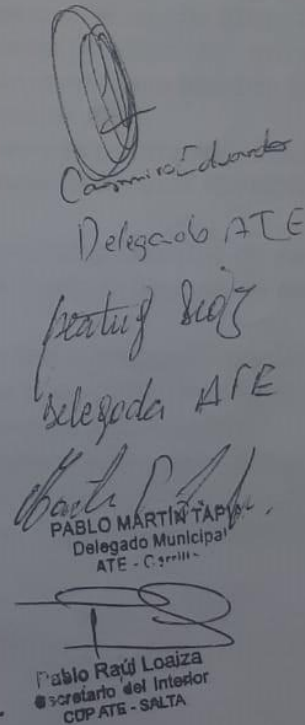 Casimiro Eduardo
Delegado ATE
Beatriz
Delegada ATE
PABLO MARTÍN TAPIA
Delegado Municipal
ATE -
Pablo Raúl Loaiza
Secretario del Interior
CDP ATE - SALTA